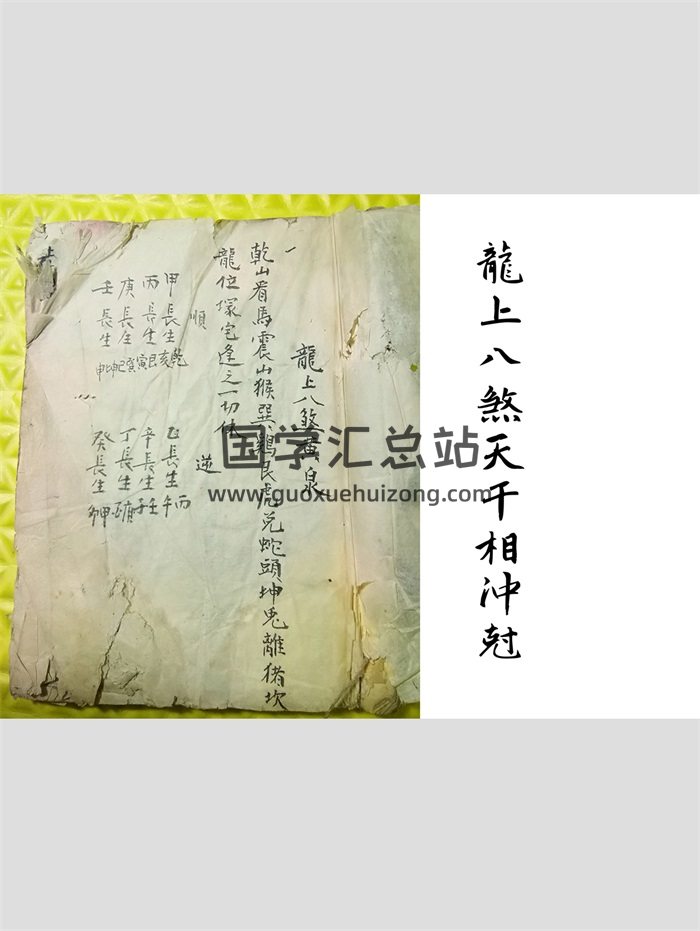 龍上八煞天干相沖尅
一
龍上八煞黃泉
乾山看馬震山猴巽鷄艮虎兌蛇頭坤兎離猪坎
龍位塚宅逢之一切休
順
甲長生乾亥
丙長生艮寅
庚長生巽巳
壬長生坤申
逆
乙長生丙午
辛長生壬子
丁長生庚酉
癸長生甲卯
国学汇总站
www.guoxuehuizong.com